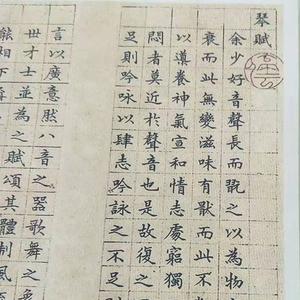 琴賦
余少好音聲長而翫之以為物
衰而此無變滋味有猒而此不
以導養神氣宣和情志處窮獨
悶者莫近於聲音也是故復之
足則吟詠以肆志吟詠之不足則
言以廣意然八音之器歌舞之
世才士並為之賦頌其體制風